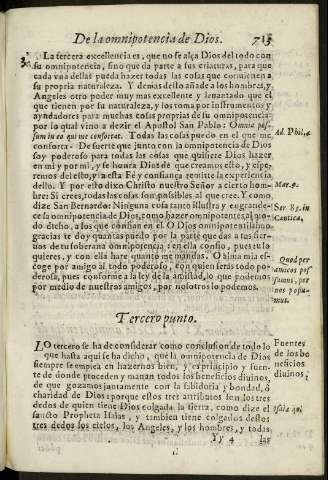 De la omnipotencia de Dios. 713
La tercera excellencia es, que no se alça Dios del todo con
su omnipotencia, sino que da parte a sus criaturas, para que
cada vna dellas pueda hazer todas las cosas que conuienen a
su propria naturaleza. Y demas desto añade a los hombres, y
Angeles otro poder muy mas excellente y leuantado que el
que tienen por su naturaleza, y los toma por instrumentos y
ayudadores para muchas cosas proprias de su omnipotencia:
por lo qual vino a dezir el Apostol San Pablo: Omnia pos-
sum in eo qui me confortat. Todas las cosas puedo en el que me
Ad Phil. 4
conforta. De suerte que junto con la omnipotencia de Dios
soy poderoso para todas las cosas que quisiere Dios hazer
en mi y por mi, y se honra Dios de que creamos esto, y espe-
remos desto, y a esta Fé y confiança remitte la experiencia
dello. Y por esto dixo Christo nuestro Señor a cierto hom-
Mar. 9.
bre: Si crees, todas las cosas son possibles al que cree. Y como
dize San Bernardo: Ninguna cosa tanto illustra y engrande-
Ser. 85. in
ce la omnipotencia de Dios, como hazer omnipotentes, al mo-
Cantica,
do dicho, a los que confian en el. O Dios omnipotentissimo
gracias te doy quantas puedo por la parte que das a tus sier-
uos de tu soberana omnipotencia: en ella confio, pues tu lo
quieres, y con ella haré quanto me mandas. O alma mia es-
Quod per
coge por amigo al todo poderoso, con quien serás todo po-
amicos pos
derosa, pues conforme a la ley de la amistad, lo que podemos
sumus, per
por medio de nuestros amigos, por nosotros lo podemos.
nos possu-
mus.
Tercero punto.
LO tercero se ha de considerar como conclusion de todo lo
Fuentes
que hasta aqui se ha dicho, que la omnipotencia de Dios
de los be
siempre se emplea en hazernos bien, y es principio y fuen-
neficios
te de donde proceden y manan todos los beneficios diuinos,
diuinos.
de que gozamos juntamente con la sabiduria, y bondad, ó
charidad de Dios: porque estos tres atributos son los tres
dedos de quien tiene Dios colgada la tierra, como dize el
Isaiæ 40.
sancto Propheta Isaias, y tambien tiene colgados destos
tres dedos los cielos, los Angeles, y los hombres, y todas
Yy 4 las